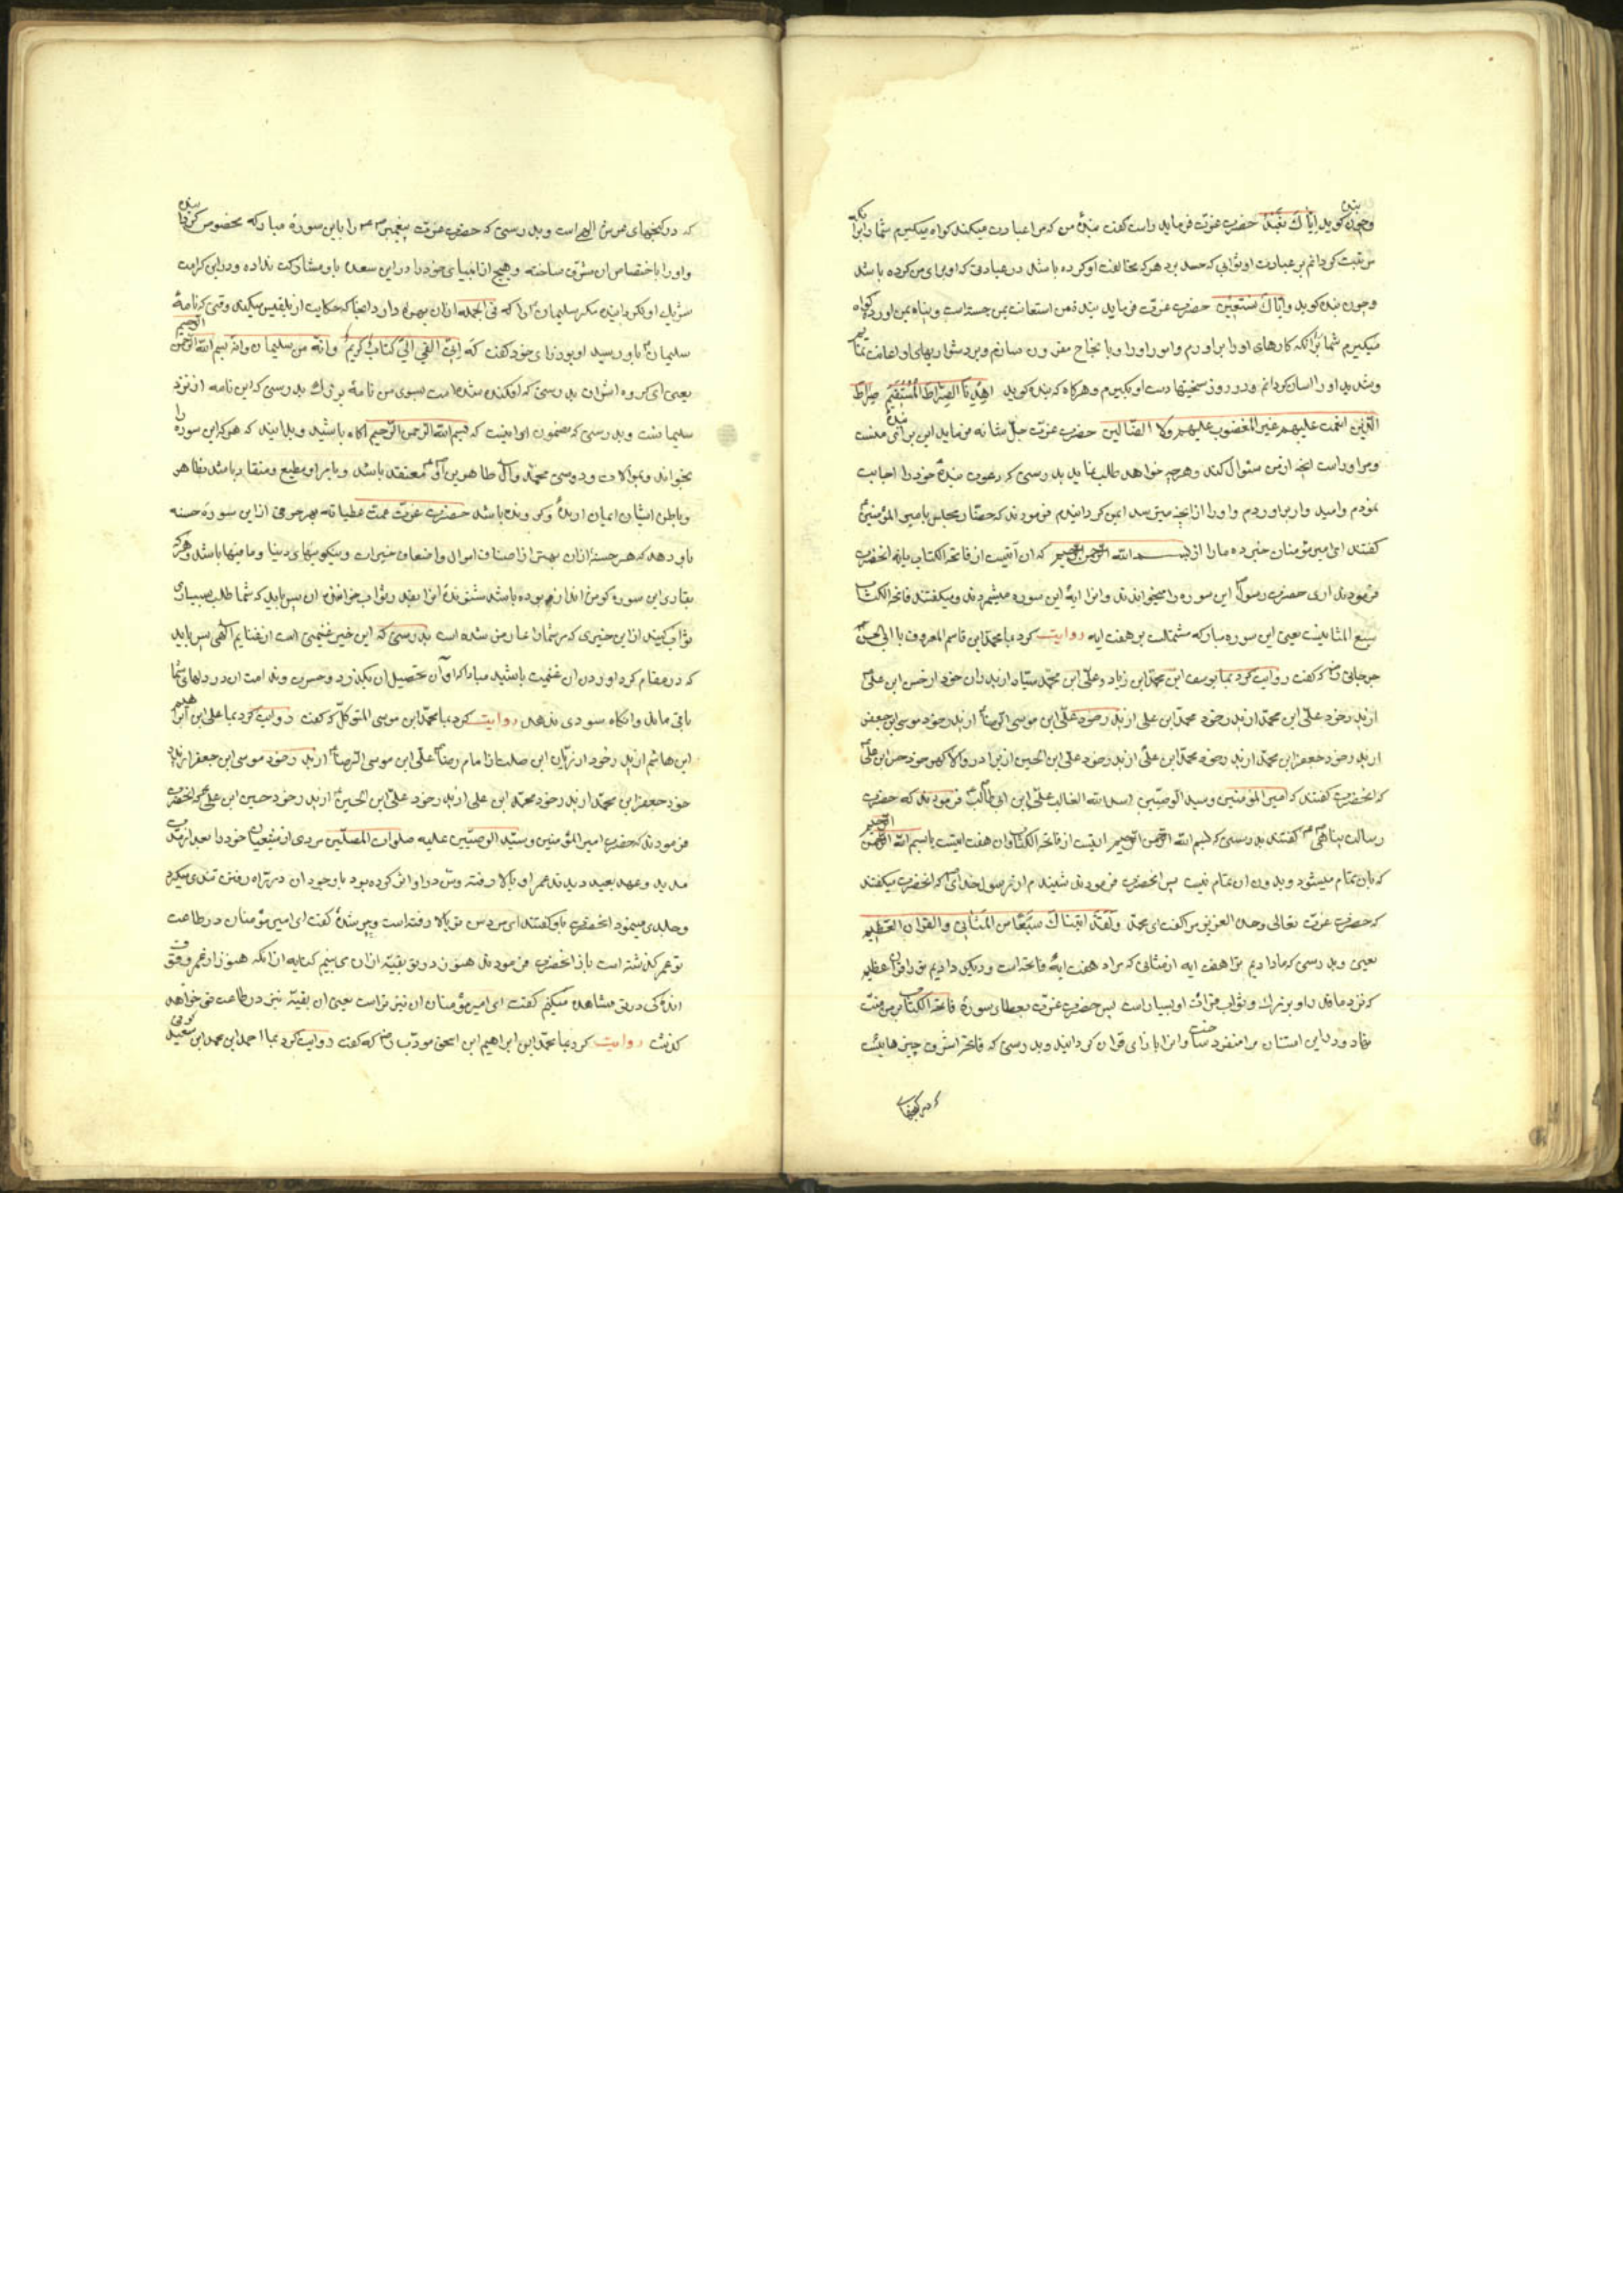 وچون بنده گوید ایاک نعبد حضرت عزت فرماید راست گفت بنده من که مرا عبادت میکند گواه میگیرم شما را که
من ثبت گردانم بر عبادت او ثوابی که حسد برد هر که مخالفت او کرده باشد در عبادتی که او برای من کرده باشد
وچون بنده گوید وایاک نستعین حضرت عزت فرماید بنده من استعانت بمن جسته است وپناه بمن اورده گواه
میگیرم شما را که کارهای او را براورم وامور او را بانجاح مقرون سازم ودر دشواریهای او اعانت نمایم
وشداید او را اسان گردانم ودر روز سختیها دست او بگیرم وهرگاه که بنده گوید اهدنا الصراط المستقیم صراط
الذین انعمت علیهم غیر المغضوب علیهم ولا الضالین حضرت عزت جل شانه فرماید این برای بنده منست
ومر او راست انچه از من سئوال کند وهرچه خواهد طلب نماید بدرستی که دعوت بنده خود را اجابت
نمودم وامید او براوردم واو را از انچه میترسد ایمن گردانیدم فرمودند که حضار مجلس بامیر المؤمنین
گفتند ای امیر مؤمنان خبر ده ما را از بسم الله الرحمن الرحیم که ان آیتیست از فاتحة الکتاب یا نه انحضرت
فرمودند اری حضرت رسول این سوره را میخواندند وانرا ایهٔ این سوره میشمردند ومیگفتند فاتحة الکتاب
سبع المثانیست یعنی این سوره مبارکه مشتملست بر هفت ایه روایت کرد بما محمد ابن قاسم المعروف بابی الحسن
جرجانی که گفت روایت کرد بما یوسف ابن محمد ابن زیاد وعلی ابن محمد سیار از پدران خود از حسن ابن علی
از پدر خود علی ابن محمد از پدر خود محمد ابن علی از پدر خود علی ابن موسی الرضا از پدر خود موسی ابن جعفر
از پدر خود جعفر ابن محمد از پدر خود محمد ابن علی از پدر خود علی ابن الحسین از برادر والاگهر خود حسن ابن علی
که انحضرت گفتند که امیر المؤمنین وسید الوصیین اسد الله الغالب علی ابن ابی طالب فرمودند که حضرت
رسالت پناهی گفتند بدرستی که بسم الله الرحمن الرحیم ایتیست از فاتحة الکتاب وان هفت ایتست باسم الله الرحمن الرحیم
که بان تمام میشود وبدون ان تمام نیست پس انحضرت فرمودند شنیدم از رسول خدای که انحضرت میگفتند
که حضرت عزت تعالی وحده العزیز مرا گفت ای محمد ولقد اتیناک سبعا من المثانی والقران العظیم
یعنی وبدرستی که ما دادیم ترا هفت ایه از مثانی که مراد هفت ایهٔ فاتحه است ودیگر دادیم ترا قران عظیم
که نزد ما قدر او بزرگ وثواب قرائت او بسیار است پس حضرت عزت بعطای سورهٔ فاتحة الکتاب بر من منت
نهاد ودر این امتنان مرا منفرد ساخت وانرا بازای قران گردانید وبدرستی که فاتحه اشرف چیزهائیست
که در گنجهای
که در گنجهای عرش الهی است وبدرستی که حضرت عزت پیغمبر را باین سورهٔ مبارکه مخصوص گردانیده
واو را باختصاص ان مشرف ساخته وهیچ از انبیای خود را در این سعدت با او مشارکت نداده ودر این کرامت
شریک او نگردانیده مگر سلیمان را که فی الجمله از ان بهره دارد انجا که حکایت از بلقیس میکند وقتی که نامهٔ
سلیمان باو رسید او بوزرای خود گفت که انی القی الی کتاب کریم وانه من سلیمان وانه بسم الله الرحمن الرحیم
یعنی ای گروه اشراف بدرستی که افکنده شده است بسوی من نامهٔ بزرگ بدرستی که این نامه از نزد
سلیمانست وبدرستی که مضمون او اینست که بسم الله الرحمن الرحیم اگاه باشید وبدانید که هر که این سوره را
بخواند وبموالات ودوستی محمد وآل طاهرین او معتقد باشد وبامر او مطیع ومنقاد باشد بظاهر
وباطن ایشان ایمان اورده وگرویده باشد حضرت عزت عمت عطیاته بهر حرفی از این سوره حسنه
باو دهد که هر حسنه از ان بهتر از اصناف اموال واضعاف خیرات ونیکوییهای دنیا ومافیها باشد وهر که
بقاری این سوره گوش انداز بوده باشد شنونده انرا بقدر ثواب خواننده ان پس باید که شما طلب بسیاری
ثواب کنید از این خیری که بر شما را عارض شده است بدرستی که این خیر غنیمتی است از غنایم الهی پس باید
که در مقام گرد اوردن ان غنیمت باشید مبادا که اوان تحصیل ان بگذرد وحسرت وندامت ان در دلهای شما
باقی ماند وانگاه سودی ندهد روایت کرد بما محمد ابن موسی المتوکل که گفت روایت کرد بما علی ابن ابراهیم
ابن هاشم از پدر خود از ریان ابن صلت از امام رضا علی ابن موسی الرضا از پدر خود موسی ابن جعفر از پدر
خود جعفر ابن محمد از پدر خود محمد ابن علی از پدر خود علی ابن الحسین از پدر خود حسین ابن علی که انحضرت
فرمودند که حضرت امیر المؤمنین وسید الوصیین علیه صلوات المصلین مردی از شیعیان خود را بعد از مدت
مدید وعهد بعید دیدند عمر او بالا رفته وسن در او اثر کرده بود با وجود ان در راه رفتن تندی میکرد
وجلدی مینمود انحضرت باو گفتند ای مرد سن تو بالا رفته است وپیر شدهٔ گفت ای امیر مؤمنان در طاعت
تو عمرم گذشته است باز انحضرت فرمودند هنوز در تو بقیه از ان می بینم کنایه از انکه هنوز از عمر وقوت
اندکی در تو مشاهده میکنم گفت ای امیر مؤمنان ان نیز تراست یعنی ان بقیه نیز در طاعت تو خواهد
گذشت روایت کرد بما محمد ابن ابراهیم ابن اسحق مودب که گفت روایت کرد بما احمد ابن محمد ابن سعید کوفی